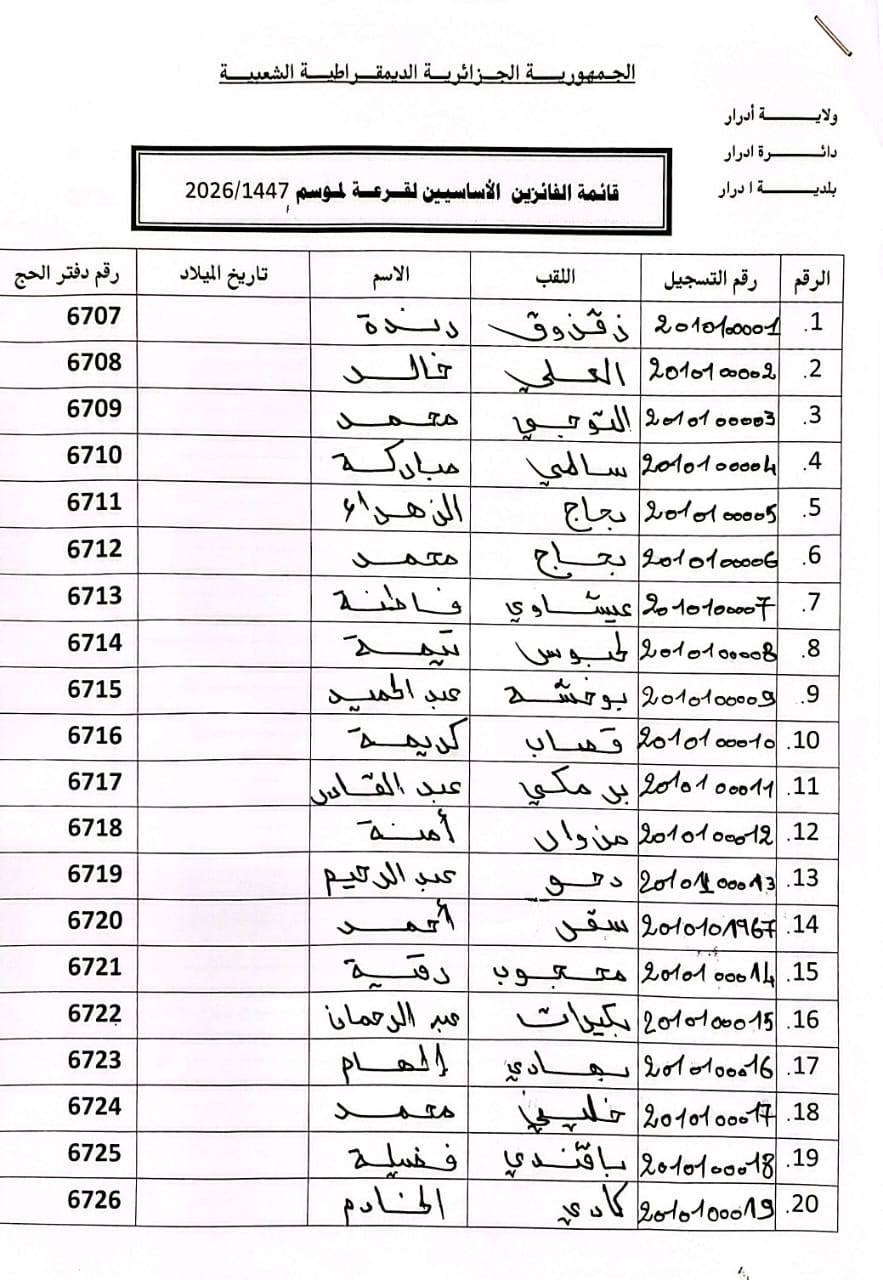 الجمهورية الجزائرية الديمقراطية الشعبية
ولاية أدرار
دائرة ادرار
بلدية ادرار
قائمة الفائزين الأساسيين لقرعة لموسم 2026/1447
الرقم رقم التسجيل اللقب الاسم تاريخ الميلاد رقم دفتر الحج
1. 2010100001 زقزوق دندة 6707
2. 2010100002 العلمي خالد 6708
3. 2010100003 التوجي محمد 6709
4. 2010100004 سالمي مباركة 6710
5. 2010100005 بجاج الزهراء 6711
6. 2010100006 بجاج محمد 6712
7. 2010100007 عيشاوي فاطنة 6713
8. 2010100008 لحبوس 6714
9. 2010100009 بوخشة عبد الحميد 6715
10. 2010100010 قصاب كريمة 6716
11. 2010100011 بن مكي عبد القادر 6717
12. 2010100012 أمنة 6718
13. 2010100013 دحو عبد الرحيم 6719
14. 2010101967 سقر أحمد 6720
15. 2010100014 محجوب رقية 6721
16. 2010100015 بكيرات عبد الرحمان 6722
17. 2010100016 بهادي إلهام 6723
18. 2010100017 خليفي محمد 6724
19. 2010100018 باقندي فضيلة 6725
20. 2010100019 كادي الخادم 6726